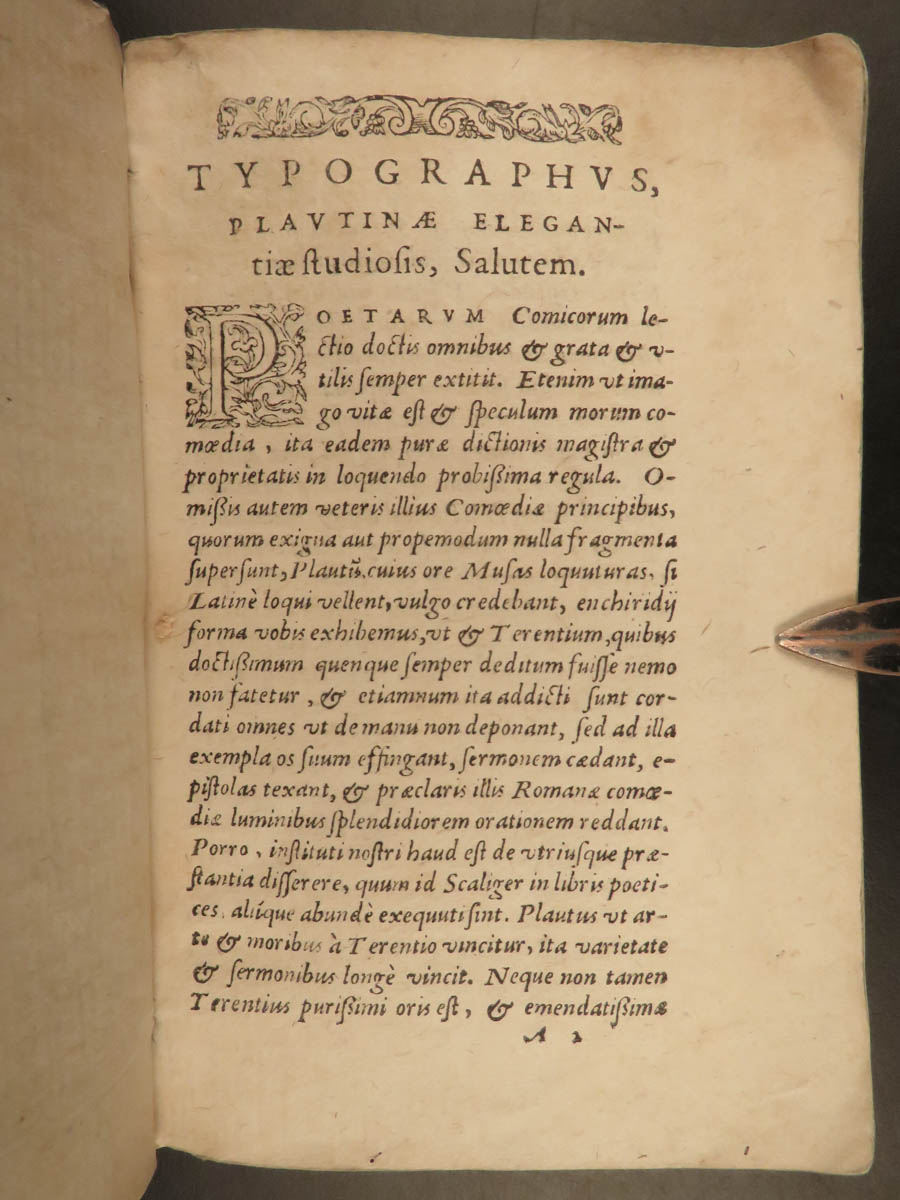 TYPOGRAPHVS,
PLAVTINÆ ELEGAN-
tiæ ſtudioſis, Salutem.
POETARVM Comicorum le-
ctio doctis omnibus & grata & v-
tilis ſemper extitit. Etenim vt ima-
go vitæ eſt & ſpeculum morum co-
mœdia, ita eadem puræ dictionis magiſtra &
proprietatis in loquendo probiſsima regula. O-
miſsis autem veteris illius Comœdiæ principibus,
quorum exigua aut propemodum nulla fragmenta
ſuperſunt, Plautũ, cuius ore Muſas loquuturas, ſi
Latinè loqui vellent, vulgo credebant, enchiridij
forma vobis exhibemus, vt & Terentium, quibus
doctiſsimum quenque ſemper deditum fuiſſe nemo
non fatetur, & etiamnum ita addicti ſunt cor-
dati omnes vt de manu non deponant, ſed ad illa
exempla os ſuum effingant, ſermonem cædant, e-
piſtolas texant, & præclaris illis Romanæ comœ-
diæ luminibus ſplendidiorem orationem reddant.
Porro, inſtituti noſtri haud eſt de vtriuſque præ-
ſtantia diſſerere, quum id Scaliger in libris poeti-
ces, aliíque abundè exequuti ſint. Plautus vt ar-
te & moribus à Terentio vincitur, ita varietate
& ſermonibus longè vincit. Neque non tamen
Terentius puriſsimi oris eſt, & emendatiſsimæ
A 2